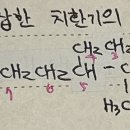 한 치환기의
CH₂ CH₂
CH₂ CH₂ CH -
H₃C